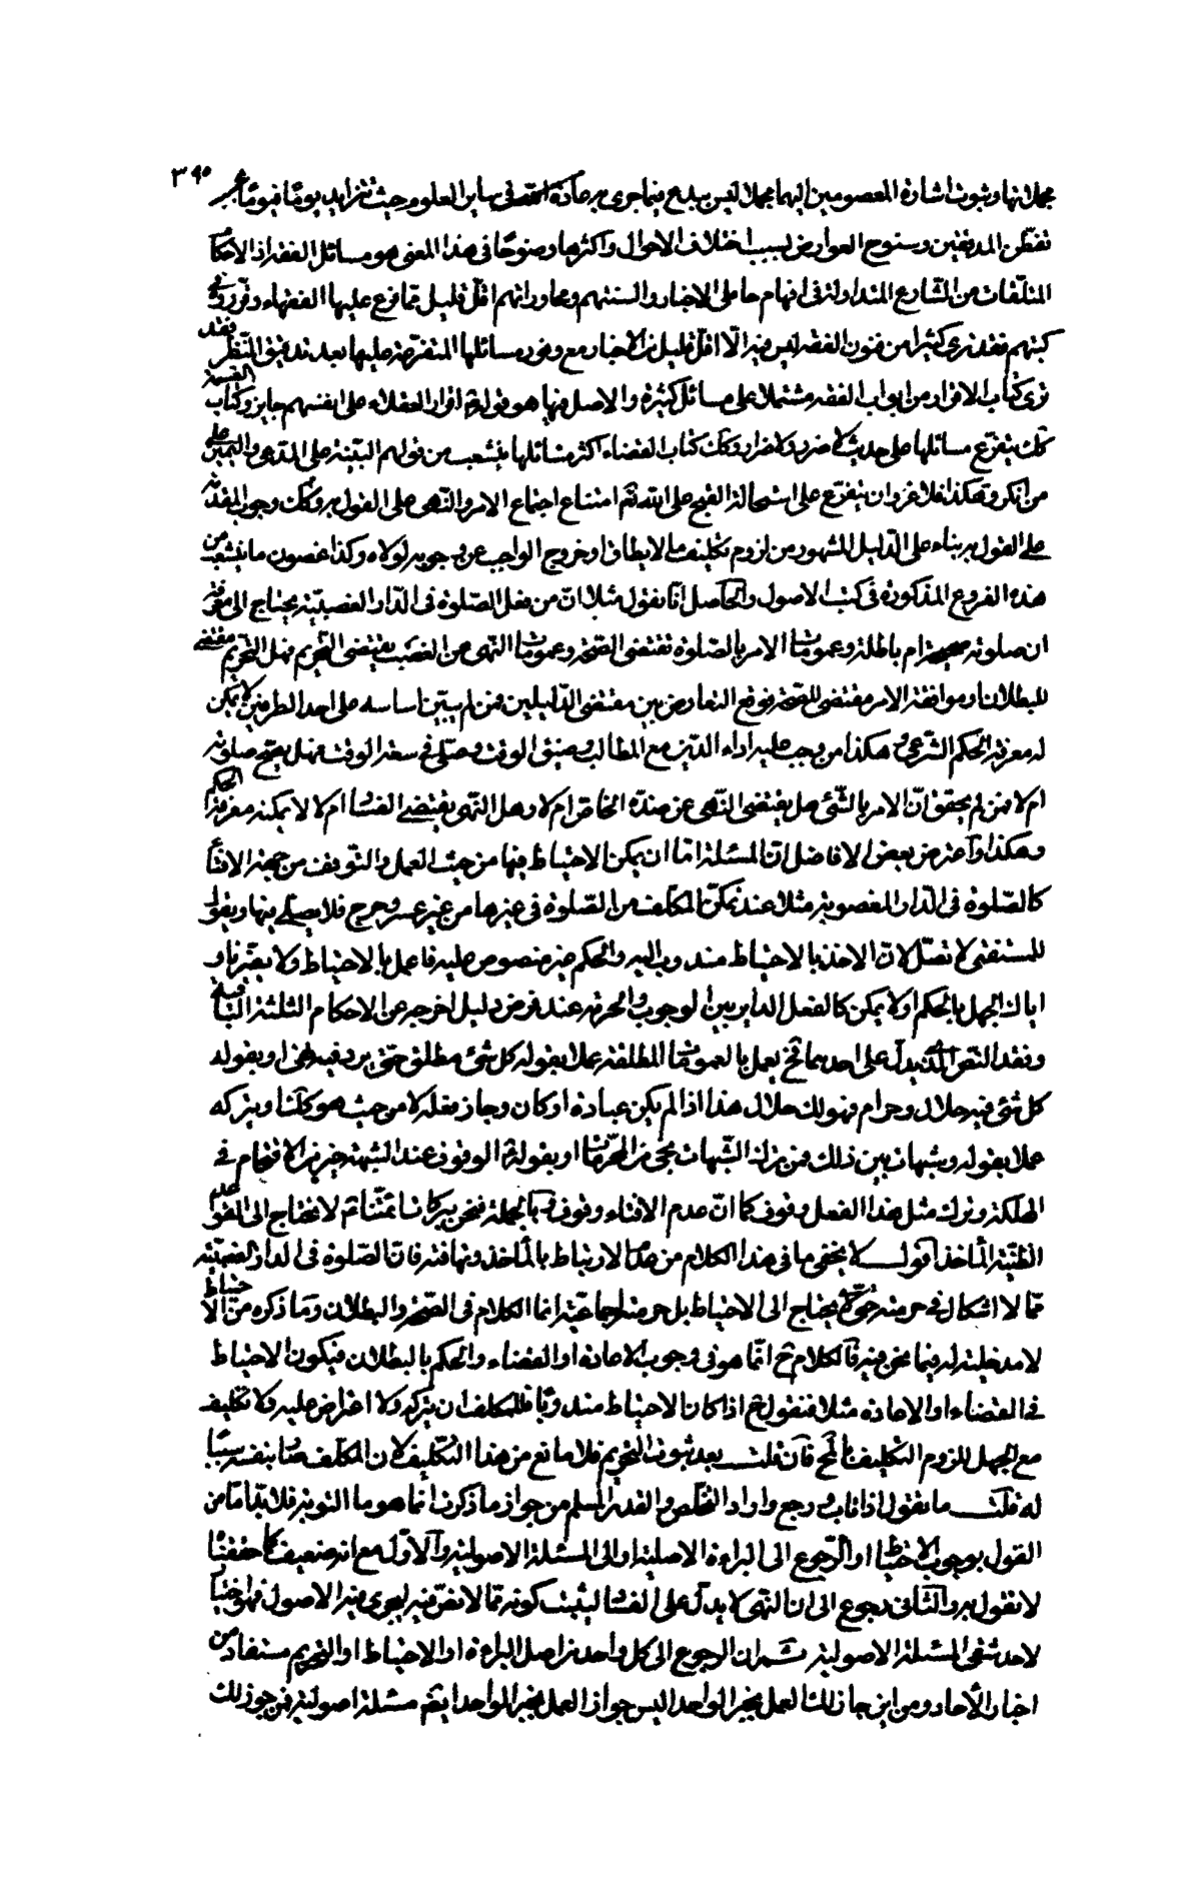 ٣٩٥
مجملاتها وثبوت اشارة المعصومين اليها مجملا ليس ببدع فيما جرى به عادة الله تعالى في ساير العلوم حيث تتزايد يوما فيوما بحسب
تفطن المدققين وسنوح العوارض بسبب اختلاف الاحوال واكثرها وضوحا في هذا المعنى هو مسائل الفقه اذ الاحكام
المتلقات من الشارع المتداولة في افهام حاملي الاخبار والسنتهم ومحاوراتهم اقل قليل مما فرع عليها الفقهاء وقرروه في
كتبهم فقد نرى كثيرا من فنون الفقه ليس فيه الا اقل قليل من الاخبار مع وفور مسائلها المتفرعة عليها بعد تدقيق النظر فقد
نرى كتاب الاقرار من ابواب الفقه مشتملا على مسائل كثيرة والاصل فيها هو قوله اقرار العقلاء على انفسهم جايز وكتاب القسمة
كك يتفرع مسائلها على حديث لا ضرر ولا ضرار وكك كتاب القضاء اكثر مسائلها ينشعب من قولهم البينة على المدعي واليمين على
من انكر وهكذا فلا غرو ان يتفرع على استحالة القبح على الله تعم امتناع اجتماع الامر والنهي على القول به وكك وجوب المقدمة
على القول به بناء على الدليل المشهور من لزوم تكليف ما لا يطاق او خروج الواجب عن وجوبه لولاه وكذا غصون ما ينشعب من
هذه الفروع المذكورة في كتب الاصول والحاصل انا نقول مثلا ان من فعل الصلوة في الدار الغصبية يحتاج الى معرفة
ان صلوته صحيحة ام باطلة وعمومات الامر بالصلوة تقتضي الصحة وعمومات النهي عن الغصب يقتضي التحريم فهل التحريم مقتضي
للبطلان او موافقة الامر مقتضي للصحة فوقع التعارض بين مقتضى الدليلين فمن لم يبين اساسه على احد الطرفين لا يمكن
له معرفة الحكم الشرعي وهكذا من وجب عليه اداء الدين مع المطالب وضيق الوقت وصلى في سعة الوقت فهل يصح صلوته
ام لا فمن لم يحقق ان الامر بالشئ هل يقتضي النهي عن ضده الخاص ام لا وهل النهي يقتضي الفساد ام لا لا يمكنه معرفة هذا الحكم
وهكذا واعترض بعض الافاضل ان المسئلة اما ان يمكن الاحتياط فيها من حيث العمل والتوقف من جهة الافتاء
كالصلوة في الدار المغصوبة مثلا عند تمكن المكلف من الصلوة في غيرها من غير عسر وحرج فلا يصلى فيها ويقول
للمستفتي لا تصل لان الاخذ بالاحتياط مندوب اليه والحكم غير منصوص عليه فاعمل بالاحتياط ولا يضرنا و
اياك الجهل بالحكم اولا يمكن كالفعل الداير بين الوجوب والحرمة عند فرض دليل اخرجه عن الاحكام الثلثة الباقية
وفقد النص الذي يدل على احدهما فح يعمل بالعمومات المطلقة عملا بقوله كل شئ مطلق حتى يرد فيه نهي او بقوله
كل شئ فيه حلال وحرام فهو لك حلال هذا اذا لم يكن عبادة او كان وجاز فعله لا من حيث هو كك او يتركه
عملا بقوله وشبهات بين ذلك فمن ترك الشبهات نجى من المحرمات او بقوله الوقوف عند الشبهة خير من الاقتحام في
الهلكة وترك مثل هذا الفعل وقوف كما ان عدم الافتاء وقوف وبالجملة فنحن ببركات ائمتنا لا نحتاج الى القواعد
الظنية المأخذ اقول لا يخفى ما في هذا الكلام من عدم الارتباط بالمأخذ وتهافته فان الصلوة في الدار الغصبية
مما لا اشكال في حرمته حتى يحتاج الى الاحتياط بل حرمتها اجماعية انما الكلام في الصحة والبطلان وما ذكره من الاحتياط
لا مدخلية له فيما نحن فيه فالكلام ح انما هو في وجوب الاعادة او القضاء والحكم بالبطلان فيكون الاحتياط
في القضاء او الاعادة مثلا فنقول ح اذا كان الاحتياط مندوبا فللمكلف ان يتركه ولا اعتراض عليه ولا تكليف
مع الجهل للزوم التكليف بالمح فان قلت بعد ثبوت التحريم فلا مانع من هذا التكليف لان المكلف صار بنفسه سببا
له قلت ما نقول اذا تاب ورجع واراد التخلص والقدر المسلم من جواز ما ذكرت انما هو ما التوبة فلا بد اما من
القول بوجوب الاحتياط او الرجوع الى البراءة الاصلية او الى المسئلة الاصولية والاول مع انه ضعيف كما حققنا
لا نقول به والثاني رجوع الى ان النهي لا يدل على الفساد ليثبت كونه مما لا نص فيه ليجري فيه الاصول فهو اختيار
لاحد شقي المسئلة الاصولية ثم ان الرجوع الى كل واحد من اصل البراءة او الاحتياط او التحريم مستفاد من
اخبار الأحاد ومن اين جاز لك العمل بخبر الواحد اليس جواز العمل بخبر الواحد ايضم مسئلة اصولية فمن جوز لك